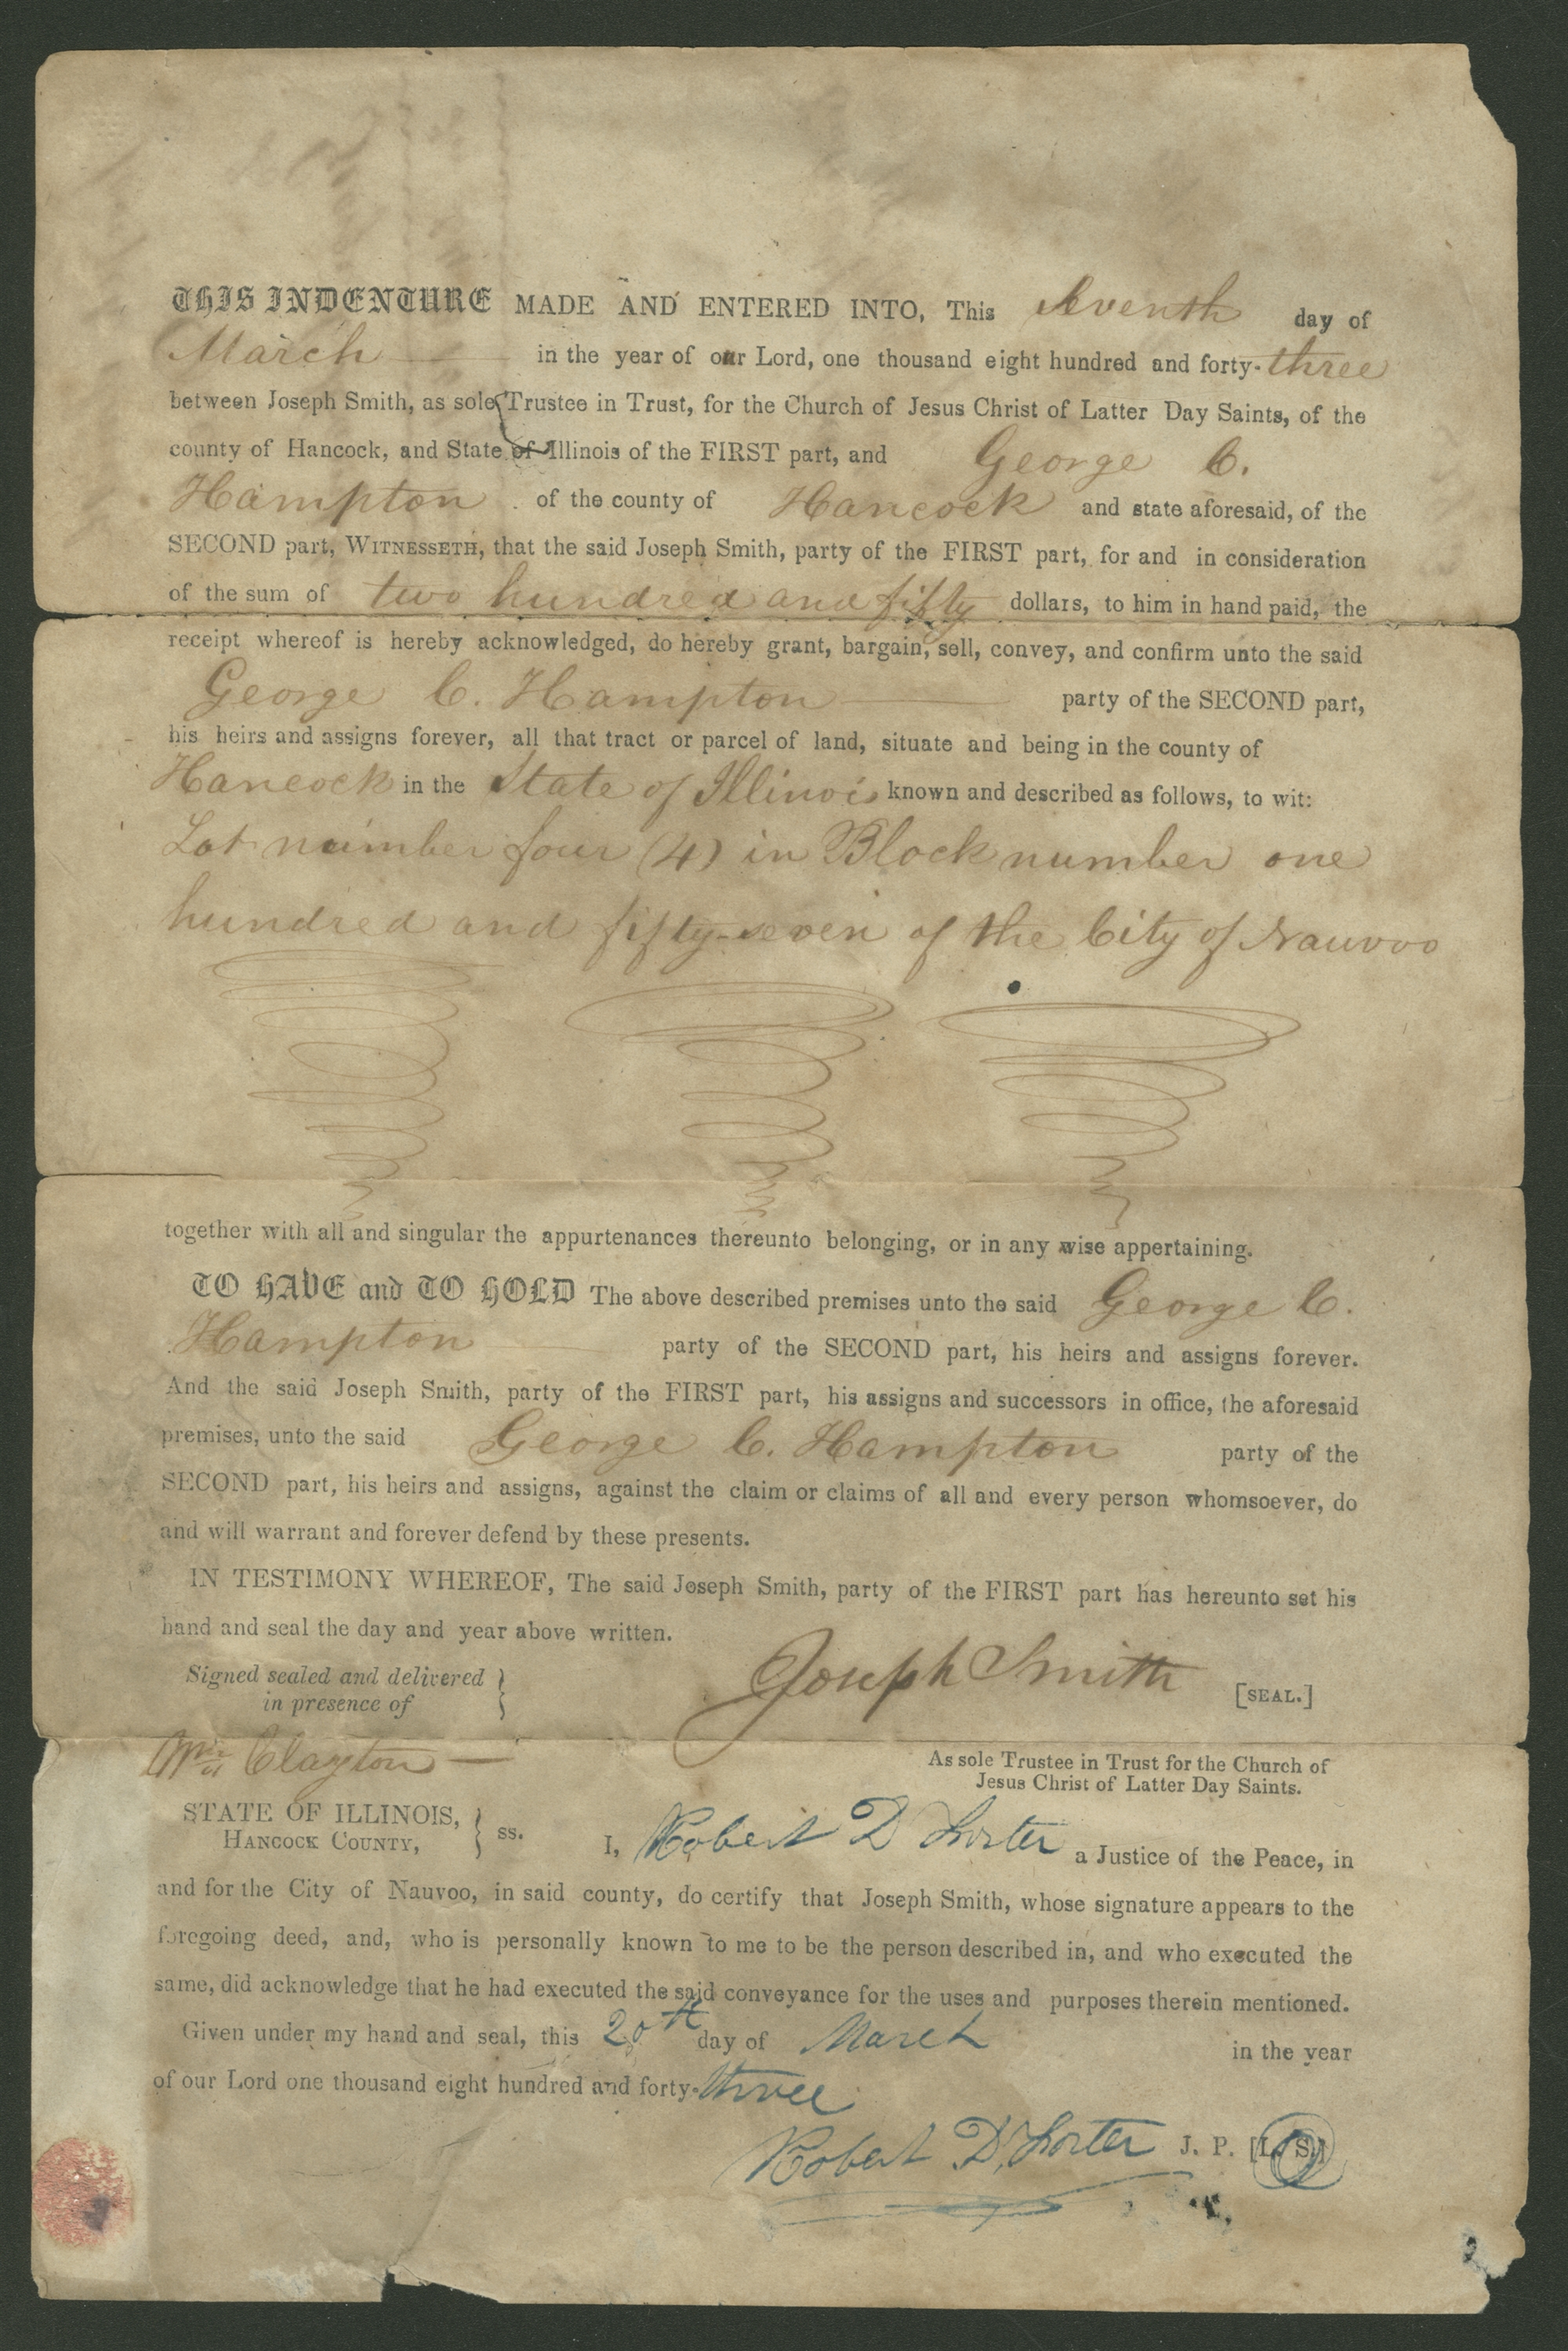 THIS INDENTURE MADE AND ENTERED INTO, This Seventh day of
March in the year of our Lord, one thousand eight hundred and forty-three
between Joseph Smith, as sole Trustee in Trust, for the Church of Jesus Christ of Latter Day Saints, of the
county of Hancock, and State of Illinois of the FIRST part, and George C.
Hampton of the county of Hancock and state aforesaid, of the
SECOND part, WITNESSETH, that the said Joseph Smith, party of the FIRST part, for and in consideration
of the sum of two hundred and fifty dollars, to him in hand paid, the
receipt whereof is hereby acknowledged, do hereby grant, bargain, sell, convey, and confirm unto the said
George C. Hampton party of the SECOND part,
his heirs and assigns forever, all that tract or parcel of land, situate and being in the county of
Hancock in the State of Illinois known and described as follows, to wit:
Lot number four (4) in Block number one
hundred and fifty-seven of the City of Nauvoo
together with all and singular the appurtenances thereunto belonging, or in any wise appertaining.
TO HAVE and TO HOLD The above described premises unto the said George C.
Hampton party of the SECOND part, his heirs and assigns forever.
And the said Joseph Smith, party of the FIRST part, his assigns and successors in office, the aforesaid
premises, unto the said George C. Hampton party of the
SECOND part, his heirs and assigns, against the claim or claims of all and every person whomsoever, do
and will warrant and forever defend by these presents.
IN TESTIMONY WHEREOF, The said Joseph Smith, party of the FIRST part has hereunto set his
hand and seal the day and year above written.
Signed sealed and delivered }
in presence of
Joseph Smith [SEAL.]
Wm Clayton
As sole Trustee in Trust for the Church of
Jesus Christ of Latter Day Saints.
STATE OF ILLINOIS, } ss.
HANCOCK COUNTY,
I, Robert D Foster a Justice of the Peace, in
and for the City of Nauvoo, in said county, do certify that Joseph Smith, whose signature appears to the
foregoing deed, and, who is personally known to me to be the person described in, and who executed the
same, did acknowledge that he had executed the said conveyance for the uses and purposes therein mentioned.
Given under my hand and seal, this 20th day of March in the year
of our Lord one thousand eight hundred and forty-three
Robert D. Foster J. P. [L. S.]